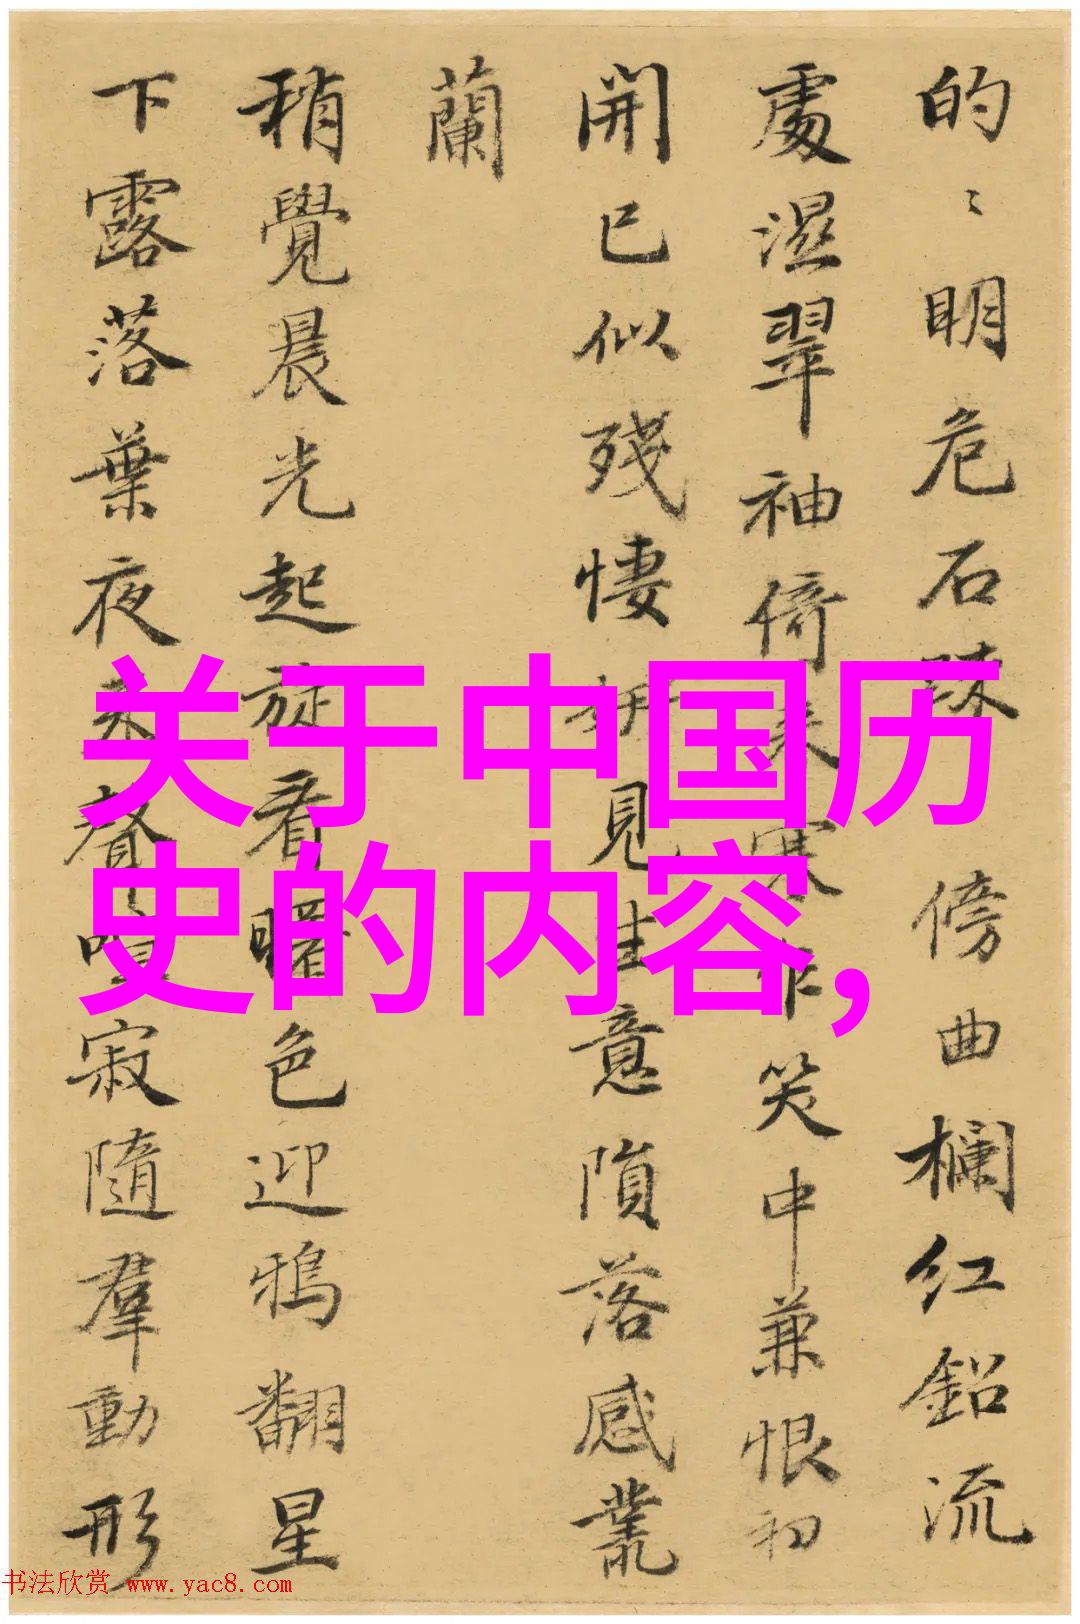 的〻明危石疎傍曲欄紅鉛流
處濕翠袖倚來寒乍笑中兼恨初
開已似殘悽妍見生意隕落感叢
蘭
稍覺晨光起旋看曙色迎鴉翻星
下露落葉夜來聲喧寂隨羣動形
关于中国历
史的内容,
书法欣赏 www.yac8.com